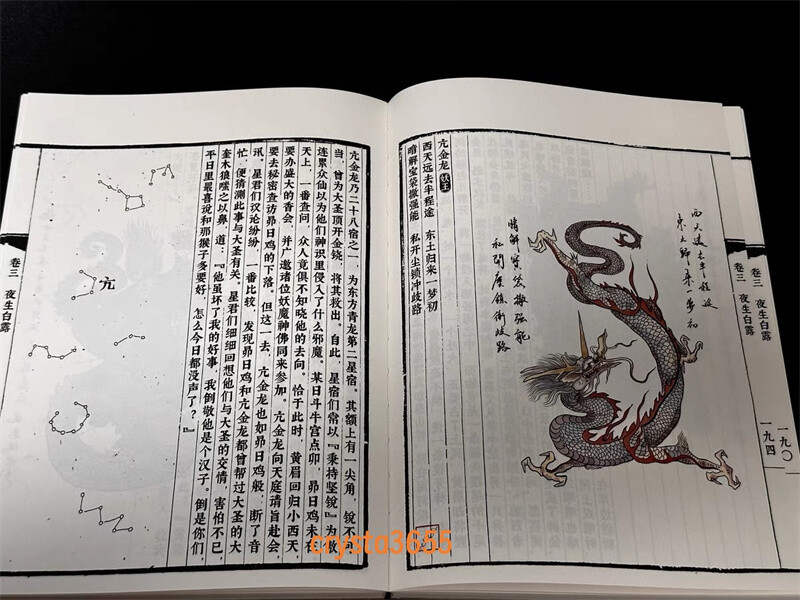 卷三 夜生白露
一九〇
卷三 夜生白露
一九四
西天遠去半程途
東土歸來一梦初
暗解寶袋撒强能
私開塵鎖衝歧路
亢金龙 妖王
西天远去半程途 东土归来一梦初
暗解宝袋撒强能 私开尘锁冲歧路
亢金龙乃二十八宿之一，为东方青龙第二星宿。其额上有一尖角，锐不可
当，曾为大圣顶开金铙，将其救出。自此，星宿们常以『秉持坚锐』为傲
连累众仙以为他们神识里侵入了什么邪魔。某日斗牛宫点卯，昴日鸡未在
天上，一番查问，众人竟俱不知晓他的去向。恰于此时，黄眉回归小西天，
要办盛大的香会，并广邀诸位妖魔神佛同来参加。亢金龙向天庭请旨赴会，
要去秘密查访昴日鸡的下落。但这一去，亢金龙也如昴日鸡般，断了音
讯。星君们议论纷纷，一番比较，发现昴日鸡和亢金龙都曾帮过大圣的大
忙，便猜测此事与大圣有关。星君们细细回想他们与大圣的交情，害怕不已，
奎木狼嗤之以鼻，道：『他虽坏了我的好事，我倒敬他是个汉子。倒是你们，
平日里最喜说和那猴子多要好，怎么今日都没声了？』
亢
卷三 夜生白露
crysta3655